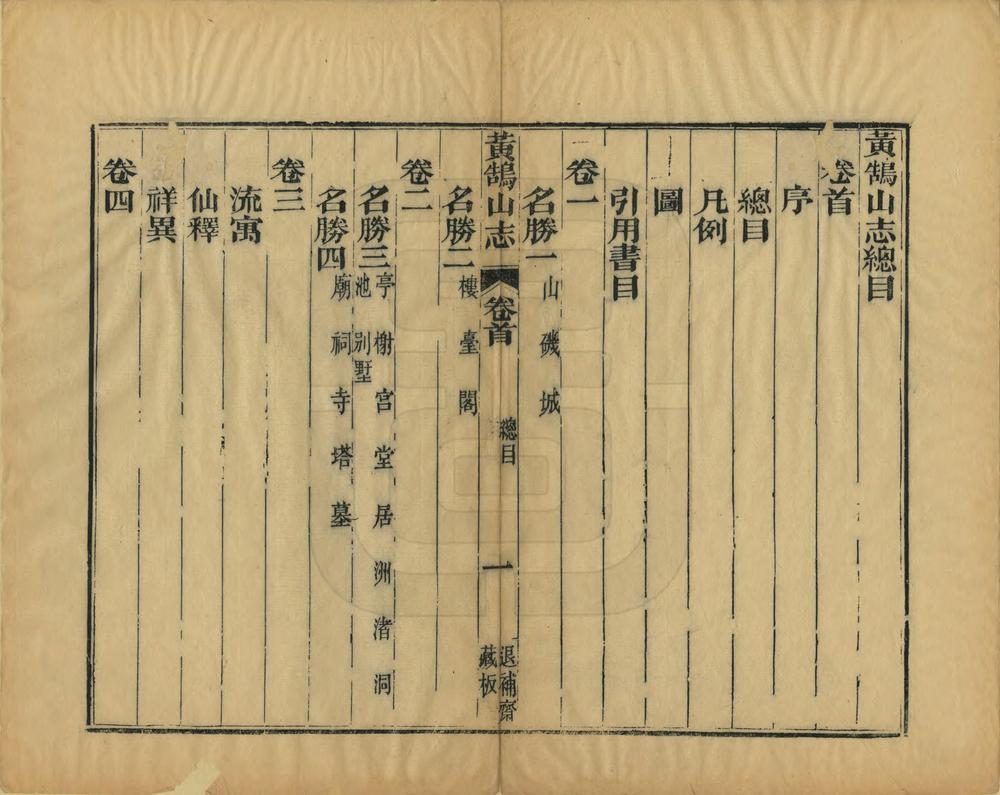 黃鵠山志總目
卷首
序
總目
凡例
圖
引用書目
卷一
名勝一 山 磯 城
黃鵠山志 卷首 總目 一 退補齋藏板
名勝二 樓 臺 閣
卷二
名勝三 亭 榭 宮 堂 居 洲 渚 洞 池 别墅
名勝四 廟 祠 寺 塔 墓
卷三
流寓
仙釋
祥異
卷四